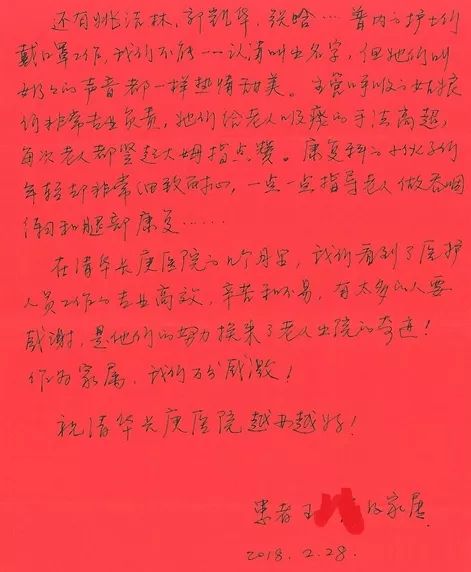 还有姚洁林，郭凯华，张晗… 普内的护士们
戴口罩工作，我们不能一一认清叫出名字，但她们叫
奶奶的声音都一样热情甜美。主管呼吸的姑娘
们非常专业负责，她们给老人吸痰的手法高超，
每次老人都竖起大姆指点赞。康复科的小伙子们
年轻却非常细致而耐心，一点一点指导老人做吞咽
和腿部康复……
在清华长庚医院的几个月里，我们看到了医护
人员工作的专业高效，辛苦和不易，有太多的人要
感谢，是他们的努力换来了老人出院的奇迹！
作为家属，我们万分感激！
祝清华长庚医院越办越好！
患者王 的家属
2018.2.28.